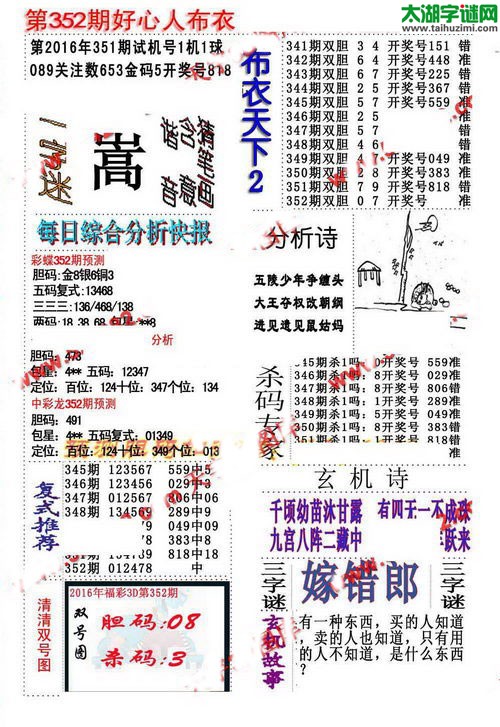 第352期好心人布衣
太湖字谜网
www.taihuzimi.com
第2016年351期试机号1机1球
089关注数653金码5开奖号818
嵩
猜笔画
含意
猜音
每日综合分析快报
彩蝶352期预测
胆码:金8银6铜3
五码复式:13468
三三三:136/468/138
两码:18.38.68.包星:**8
分析
胆码:473
包星:4** 五码:12347
定位:百位:124十位:347个位:134
中彩龙352期预测
胆码:491
包星:4** 五码复式:01349
定位:百位:124十位:349个位:013
复式推荐
345期 123567 559中5
346期 013569 806中06
347期 012567 806中06
348期 134569
9 049中
9 383中
351期 134569 818中18
352期 012478 中
清清双号图
2016年福彩3D第352期
双号图
胆码:08
杀码:3
布衣天下2
341期双胆 3 4 开奖号151 错
342期双胆 6 4 开奖号448 准
343期双胆 6 5 开奖号225 准
344期双胆 0 6 开奖号367 准
345期双胆 5 7 开奖号559 准
346期双胆 2 5
347期双胆 2 5 错
348期双胆 5 7 错
349期双胆 4 开奖号049 准
350期双胆 7 8 开奖号383 准
351期双胆 7 9 开奖号818 错
352期双胆 0 7 开奖号
分析诗
五陵少年争缠头
大王夺权改朝纲
进见遗见鼠姑妈
杀码专家
345期杀1吗: 0开奖号 559准
346期杀1吗: 8开奖号 806错
347期杀1吗: 9开奖号 029错
348期杀1吗: 8开奖号 289错
349期杀1吗: 5开奖号 049准
350期杀1吗: 8开奖号 383错
351期杀1吗: 8开奖号 818错
玄机诗
千顷幼苗沐甘露 有四无一不成珠
九宫八阵二藏中 跃来
三字谜
嫁错郎
三字谜
玄机故事
有一种东西,买的人知道
,卖的人也知道,只有用
的人不知道,是什么东西
?